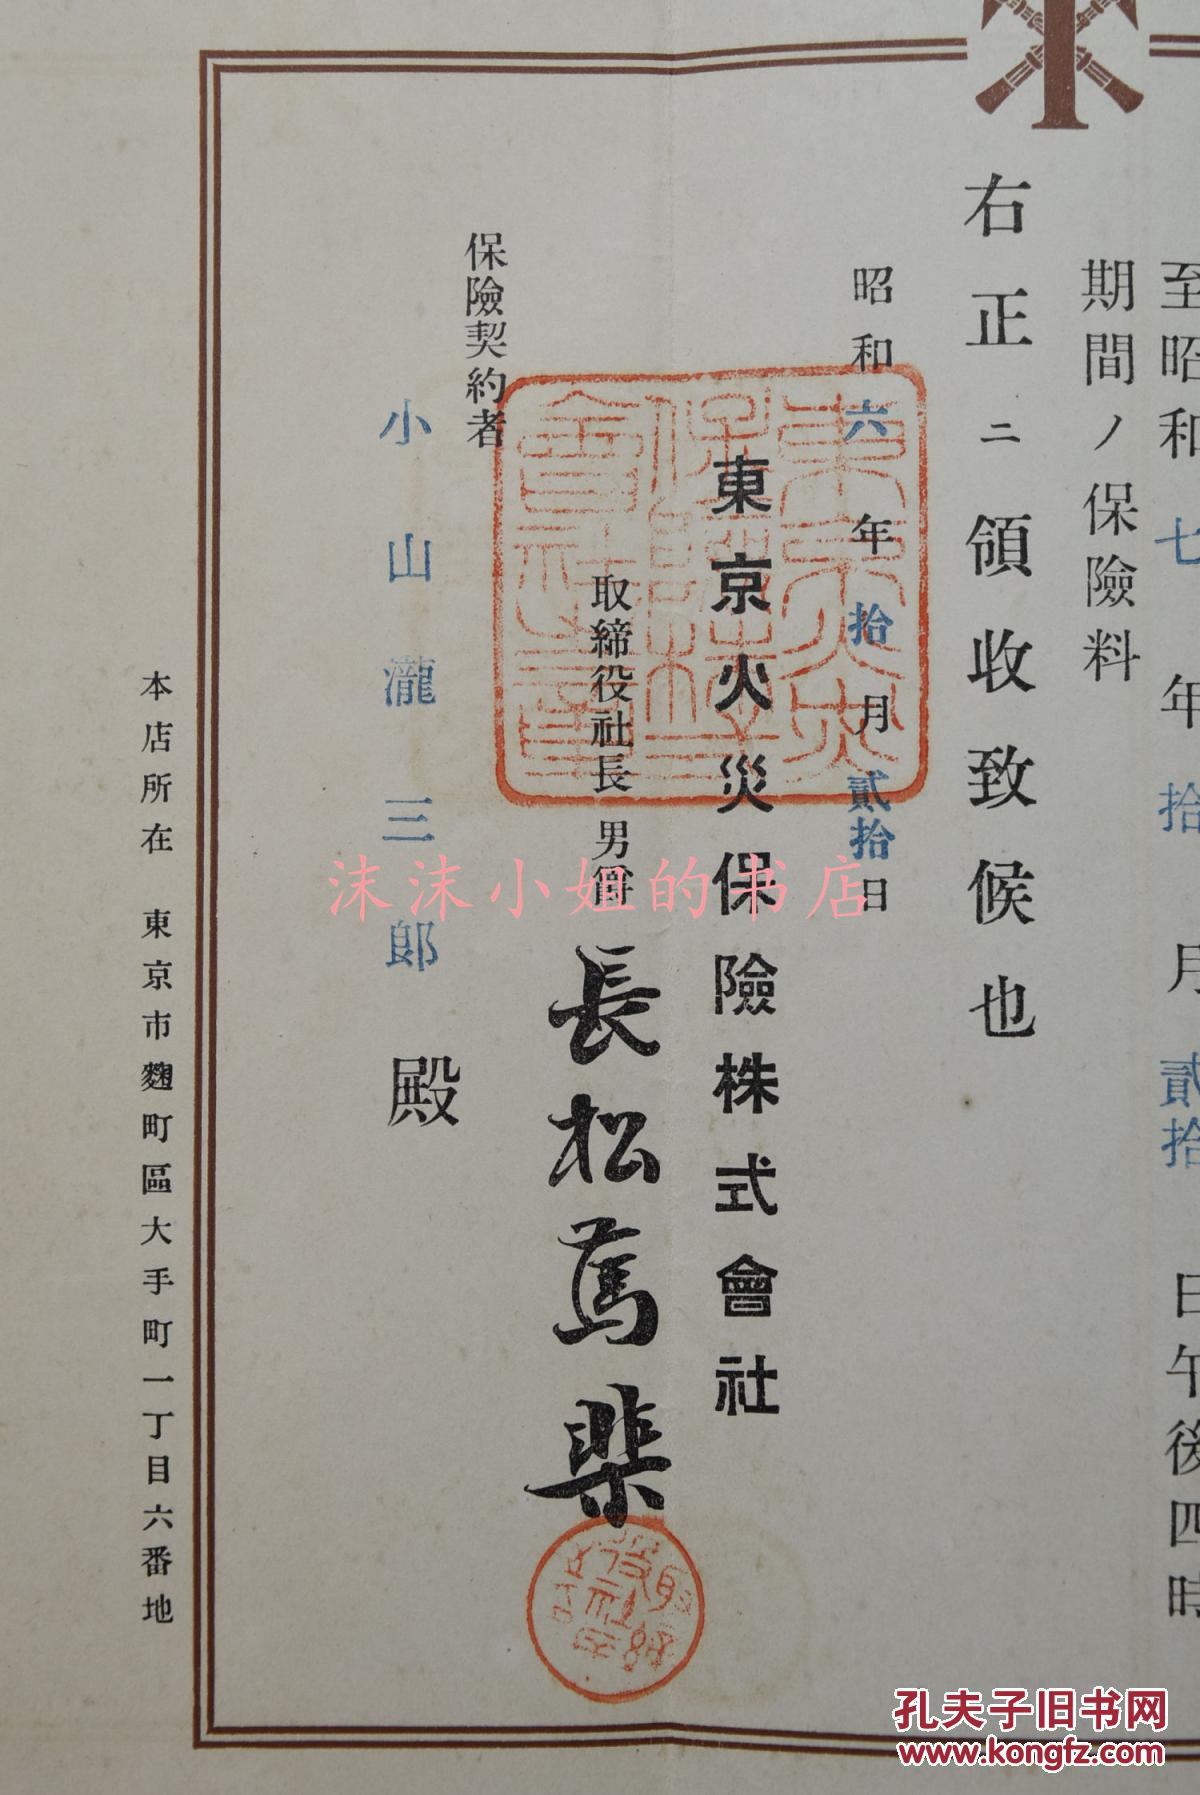 至昭和七年拾月貳拾日午後四時
期間ノ保險料
右正ニ領收致候也
昭和六年拾月貳拾日
東京火災保險株式會社
取締役社長 男爵 長松篤棐
保險契約者
小山瀧三郎殿
本店所在 東京市麹町區大手町一丁目六番地
沫沫小姐的书店
孔夫子旧书网
www.kongfz.com